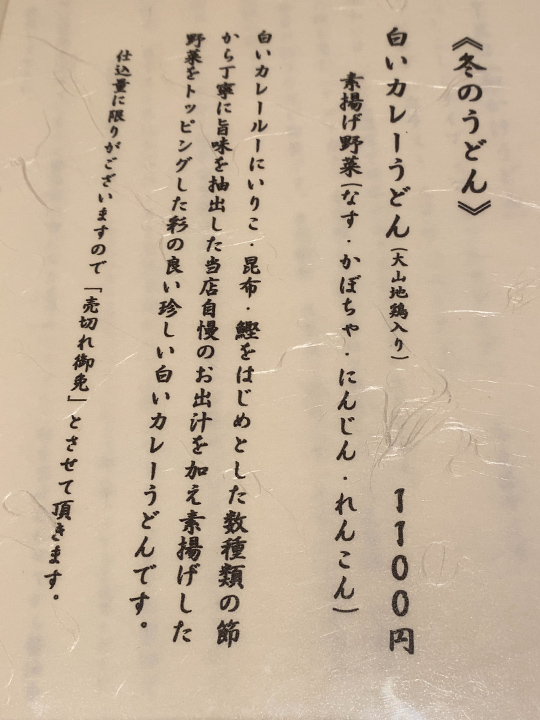 《冬のうどん》
白いカレーうどん(大山地鶏入り) 1100円
素揚げ野菜(なす・かぼちゃ・にんじん・れんこん)
白いカレールーにいりこ・昆布・鰹をはじめとした数種類の節
から丁寧に旨味を抽出した当店自慢のお出汁を加え素揚げした
野菜をトッピングした彩の良い珍しい白いカレーうどんです。
仕込量に限りがございますので「売切れ御免」とさせて頂きます。